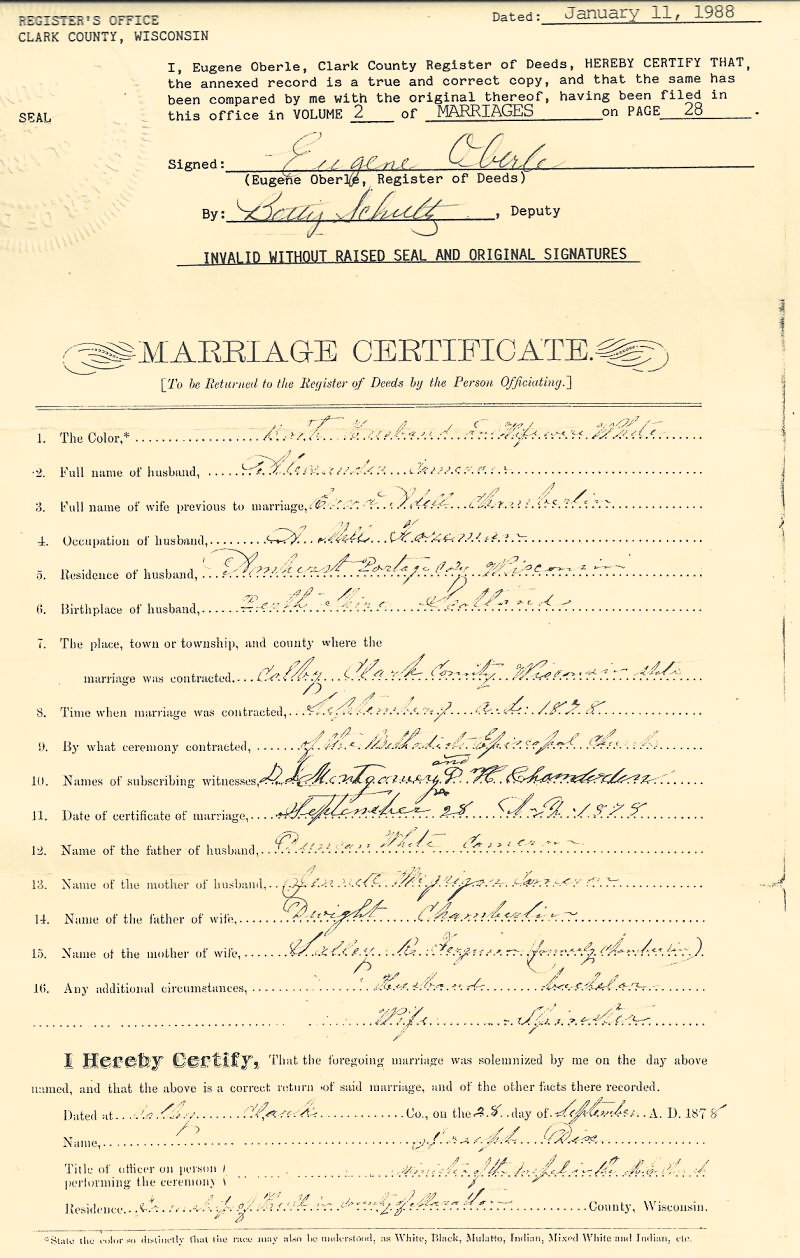 REGISTER'S OFFICE
CLARK COUNTY, WISCONSIN
Dated: January 11, 1988
I, Eugene Oberle, Clark County Register of Deeds, HEREBY CERTIFY THAT,
the annexed record is a true and correct copy, and that the same has
been compared by me with the original thereof, having been filed in
this office in VOLUME 2 of MARRIAGES on PAGE 28 .
SEAL
Signed: Eugene Oberle
(Eugene Oberle, Register of Deeds)
By: Betty Schultz, Deputy
INVALID WITHOUT RAISED SEAL AND ORIGINAL SIGNATURES
MARRIAGE CERTIFICATE.
[To be Returned to the Register of Deeds by the Person Officiating.]
1. The Color,* Both Husband and Wife were White
2. Full name of husband, Alexander Cameron
3. Full name of wife previous to marriage, Adell Chamberlin
4. Occupation of husband, A Mill Foreman
5. Residence of husband, Amherst Portage Coy Wisconsin
6. Birthplace of husband, Perth Shire Scotland
7. The place, town or township, and county where the
marriage was contracted. Colby Clark County Wisconsin State
8. Time when marriage was contracted, September A.D. 1878
9. By what ceremony contracted, of the Methodist Episcopal Church
10. Names of subscribing witnesses, D. D. Montgomery and P. H. Chamberlin
11. Date of certificate of marriage, September 28 A.D. 1878
12. Name of the father of husband, Duncan White Cameron
13. Name of the mother of husband, Jennett Cameron
14. Name of the father of wife, Dwight Chamberlin
15. Name of the mother of wife, Salley R. Ferguson (formerly Chamberlin)
16. Any additional circumstances, Husband bachelor
Wife Spinster
I Hereby Certify, That the foregoing marriage was solemnized by me on the day above
named, and that the above is a correct return of said marriage, and of the other facts there recorded.
Dated at Colby Clark Co., on the 28 day of September A. D. 1878
Name, Joseph Dix
Title of officer on person
performing the ceremony
Minister of the Gospel in the M. E. Church
Residence. Township of Hull in county of Marathon County, Wisconsin.
*State the color so distinctly that the race may also be understood, as White, Black, Mulatto, Indian, Mixed White and Indian, etc.